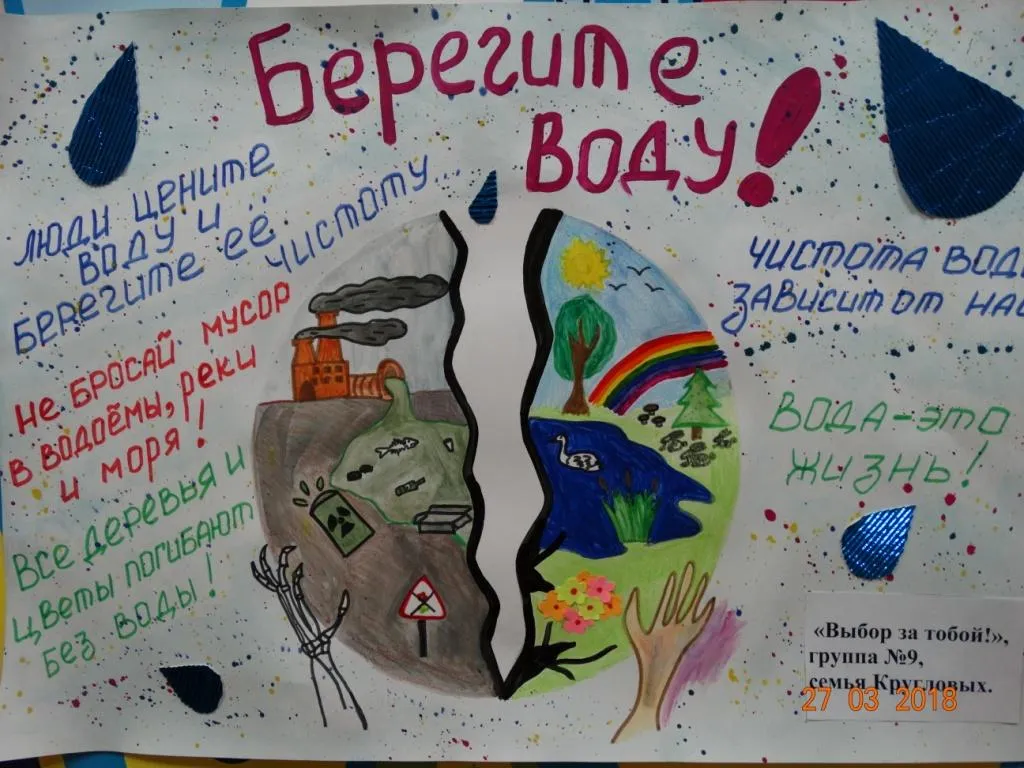 Берегите
воду!
Люди цените
воду и
берегите её
чистоту...
Не бросай мусор
в водоёмы, реки
и моря!
Все деревья и
цветы погибают
без воды!
Чистота вод
зависит от на
Вода-это
жизнь!
«Выбор за тобой!»,
группа №9,
семья Кругловых.
27 03 2018